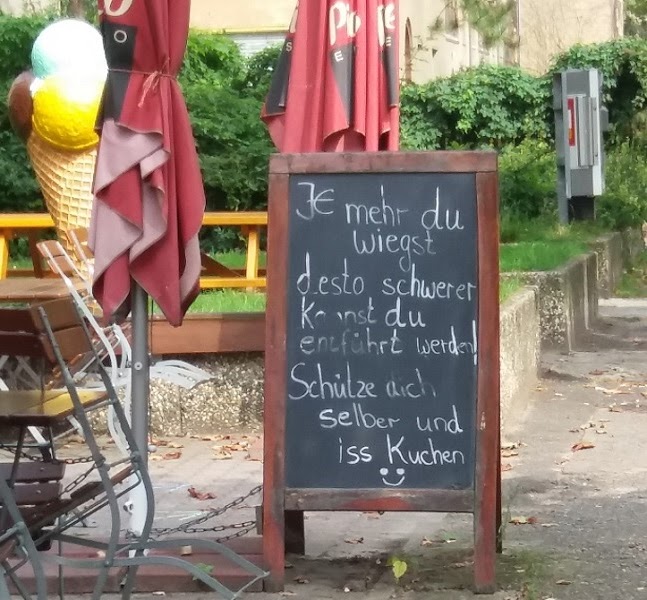 JE mehr du
wiegst
desto schwerer
kannst du
entführt werden!
Schütze dich
selber und
iss Kuchen